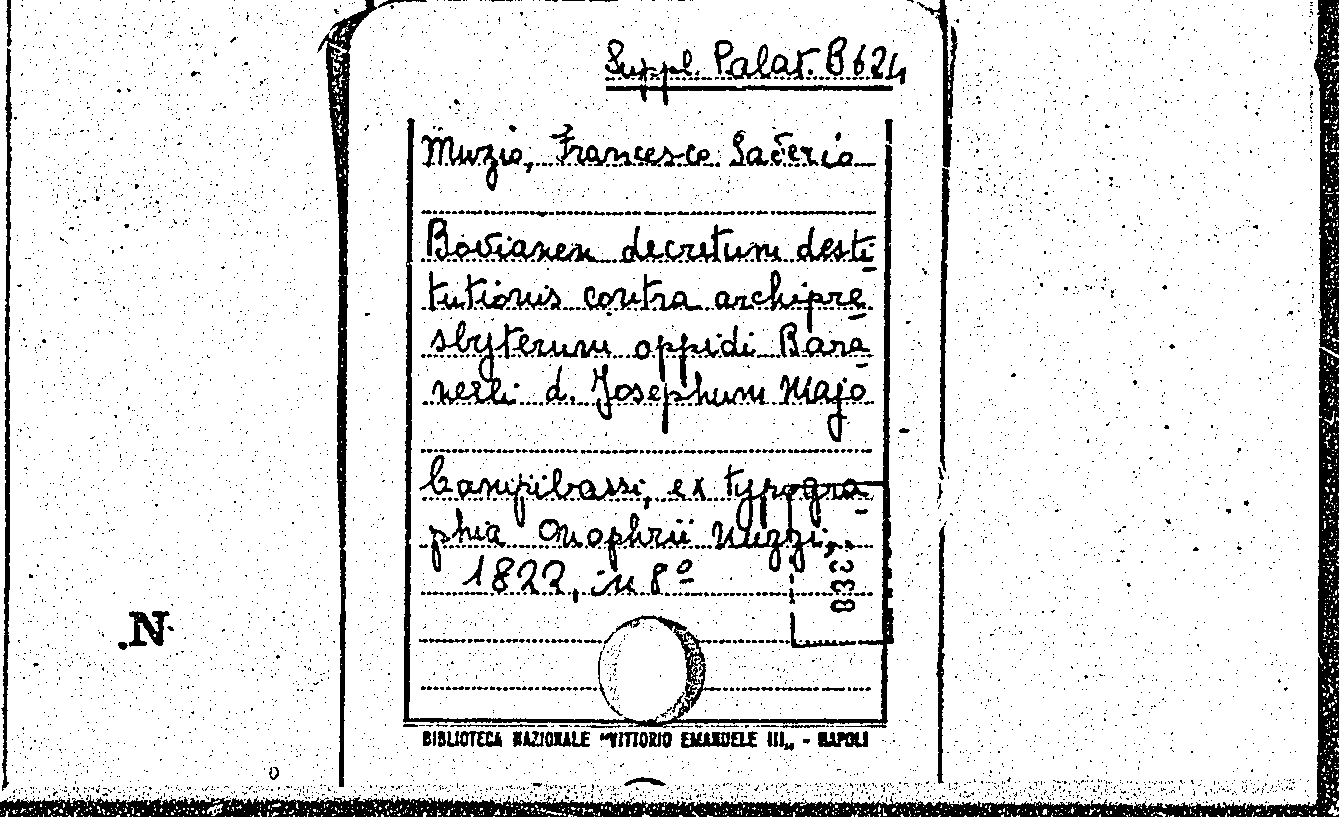 Suppl. Palat. B 624
Muzio, Francesco Saverio
Bovianen decretum desti
tutionis contra archipre
sbyterum oppidi Bara
nelli d. Josephum Majo
Campibassi, ex typogra
phia Onophrii Nuzzi,
1822, in 8º
838
.N.
BIBLIOTECA NAZIONALE "VITTORIO EMANUELE III„ - NAPOLI